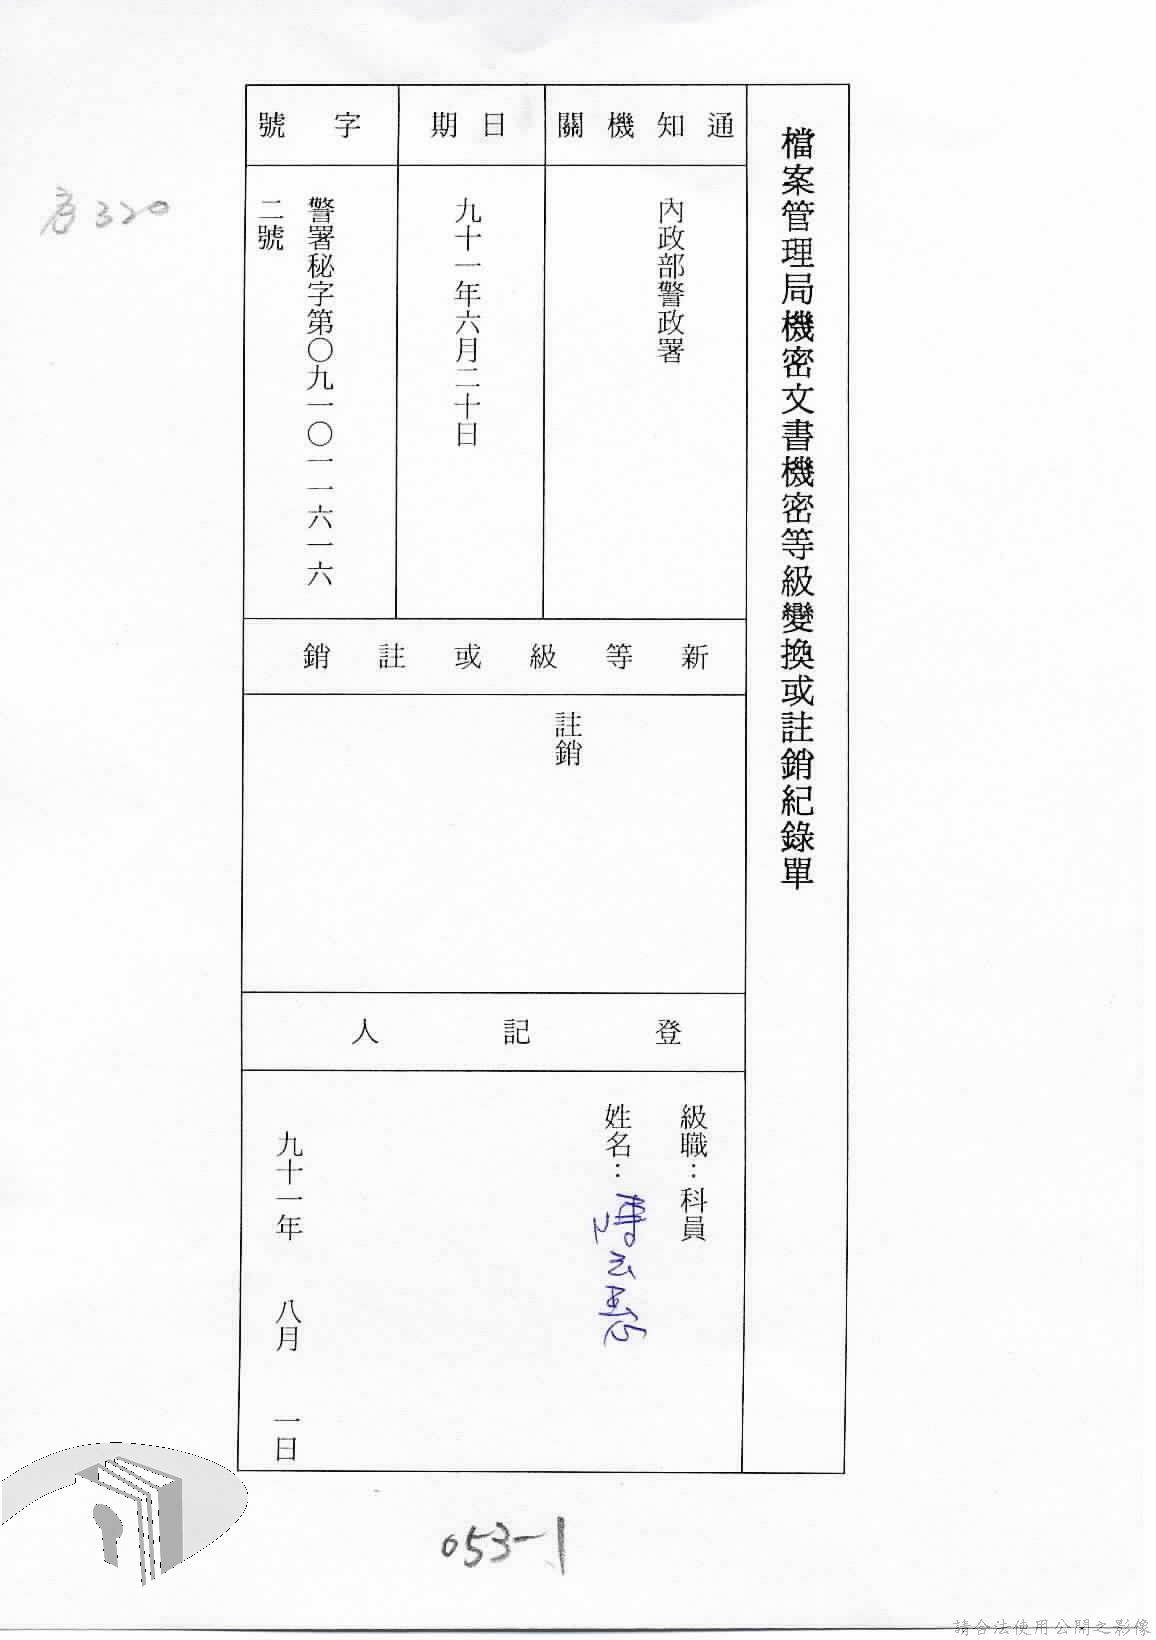 檔案管理局機密文書機密等級變換或註銷紀錄單
通知機關
內政部警政署
日期
九十一年六月二十日
字號
警署秘字第〇九一〇一一六一六
二號
新等級或註銷
註銷
登記人
級職：科員
姓名：
九十一年 八月 一日
320
053-1
請合法使用公開之影像